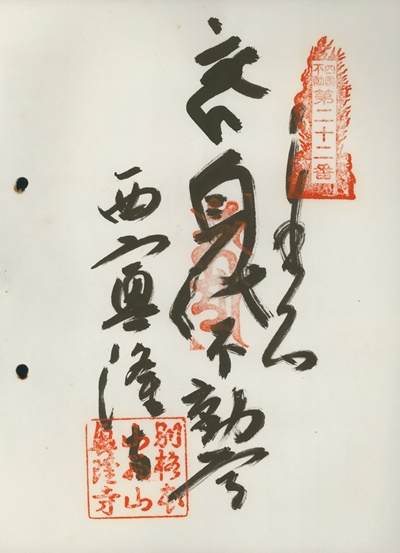 四国
不動
第二十二番
身代不動尊
西山興隆寺
別格本
山西山
興隆寺